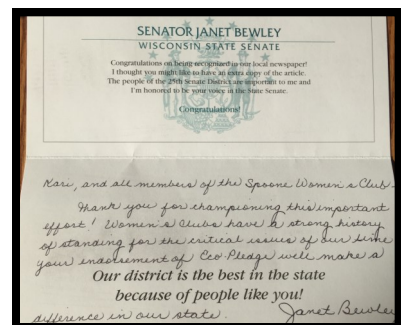 SENATOR JANET BEWLEY
WISCONSIN STATE SENATE
Congratulations on being recognized in our local newspaper!
I thought you might like to have an extra copy of the article.
The people of the 25th Senate District are important to me and
I'm honored to be your voice in the State Senate.
Congratulations!
Kari, and all members of the Spoone Women's Club -
Thank you for championing this important
effort! Women's Clubs have a strong history
of standing for the critical issues of our time
your endorsement of Eco-Pledge will make a
Our district is the best in the state
because of people like you!
difference in our state. Janet Bewley